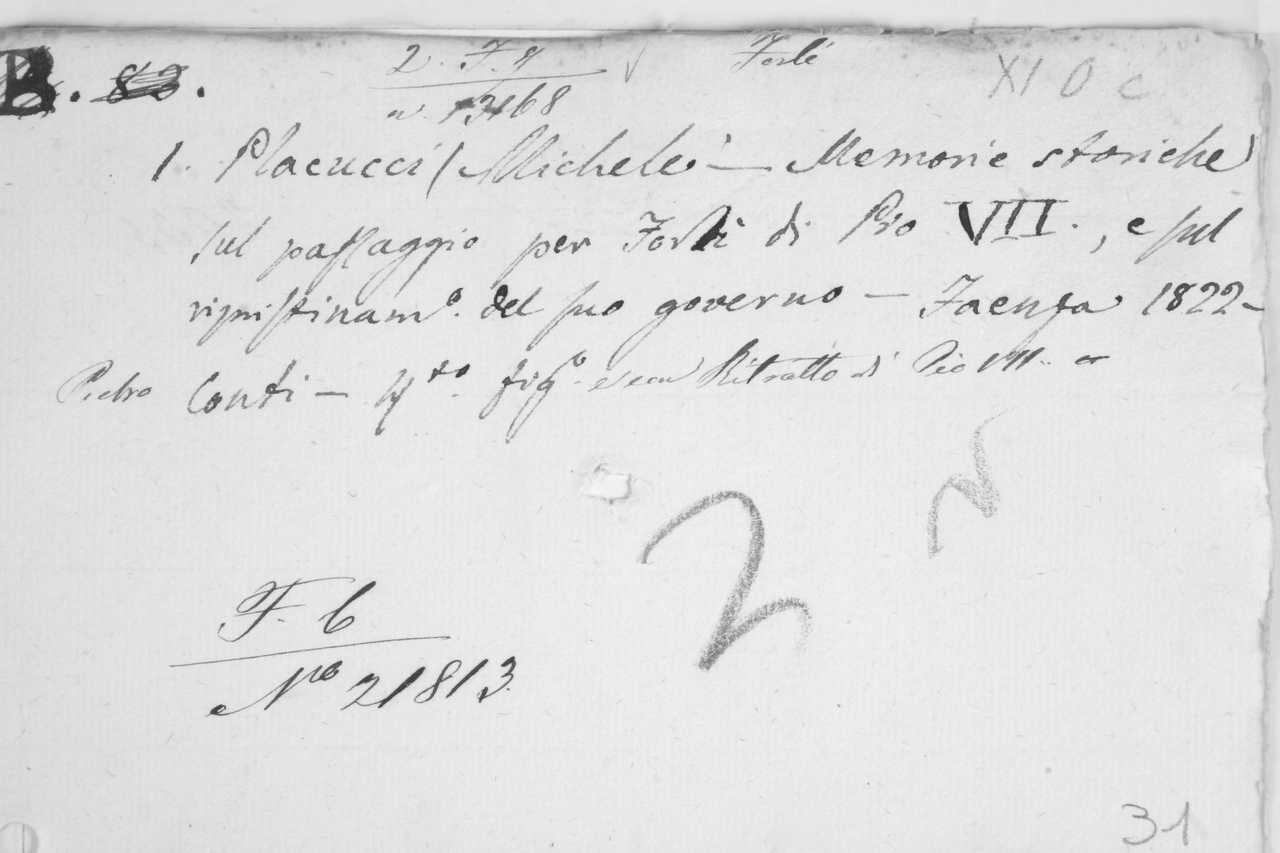 B. 83.
2. F. 4
n. 13468
Forlì
XI O c
1. Placucci / Michele — Memorie storiche
sul passaggio per Forlì di Pio VII., e sul
ripristinam.o del suo governo — Faenza 1822 -
Pietro Conti — 4.to fig.o Ritratto di Pio VII.
2
F. 6
N.o 21813.
31